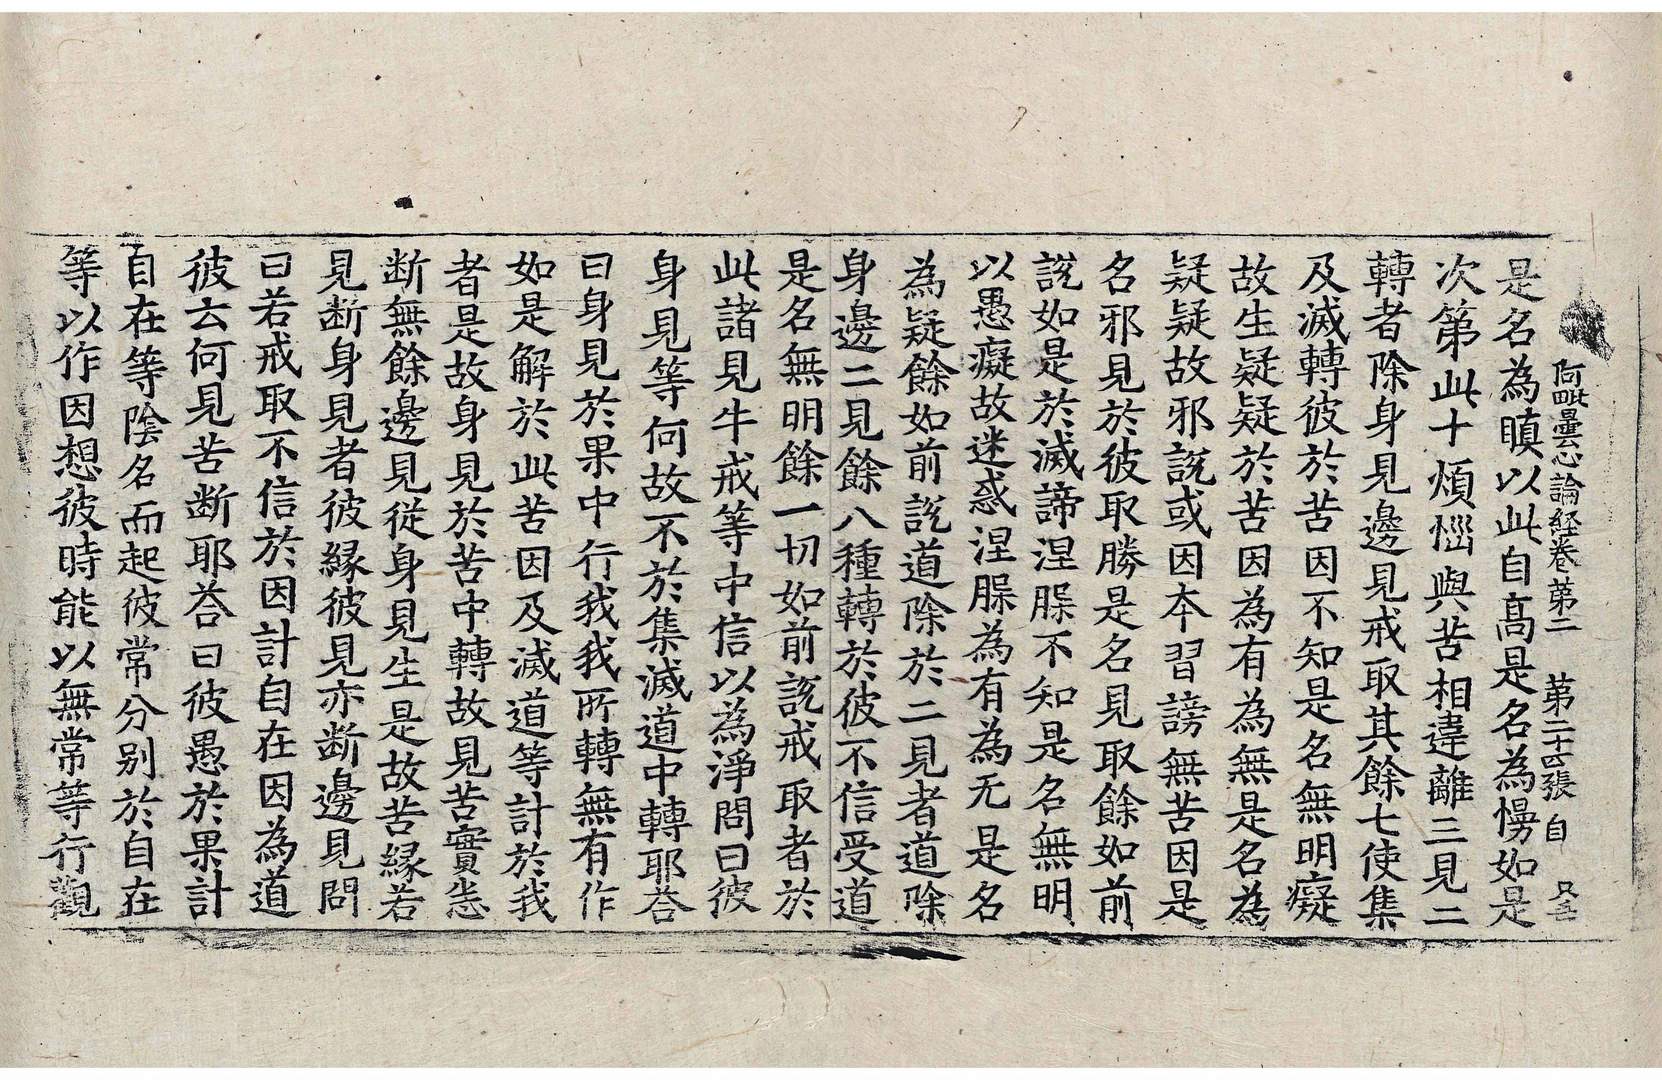 阿毗曇心論経卷第二　第二十四張　自
是名為瞋以此自髙是名為慢如是
次第此十煩惱與苦相違離三見二
轉者除身見邊見戒取其餘七使集
及滅轉彼於苦因不知是名無明癡
故生疑疑於苦因為有為無是名為
疑疑故邪説或因本習謗無苦因是
名邪見於彼取勝是名見取餘如前
説如是於滅諦涅槃不知是名無明
以愚癡故迷惑涅槃為有為无是名
為疑餘如前説道除於二見者道除
身邊二見餘八種轉於彼不信受道
是名無明餘一切如前説戒取者於
此諸見牛戒等中信以為淨問曰彼
身見等何故不於集滅道中轉耶荅
曰身見於果中行我我所轉無有作
如是解於此苦因及滅道等計於我
者是故身見於苦中轉故見苦實悉
断無餘邊見從身見生是故苦縁若
見断身見者彼縁彼見亦断邊見問
曰若戒取不信於因計自在因為道
彼云何見苦断耶荅曰彼愚於果計
自在等陰名而起彼常分别於自在
等以作因想彼時能以無常等行觀